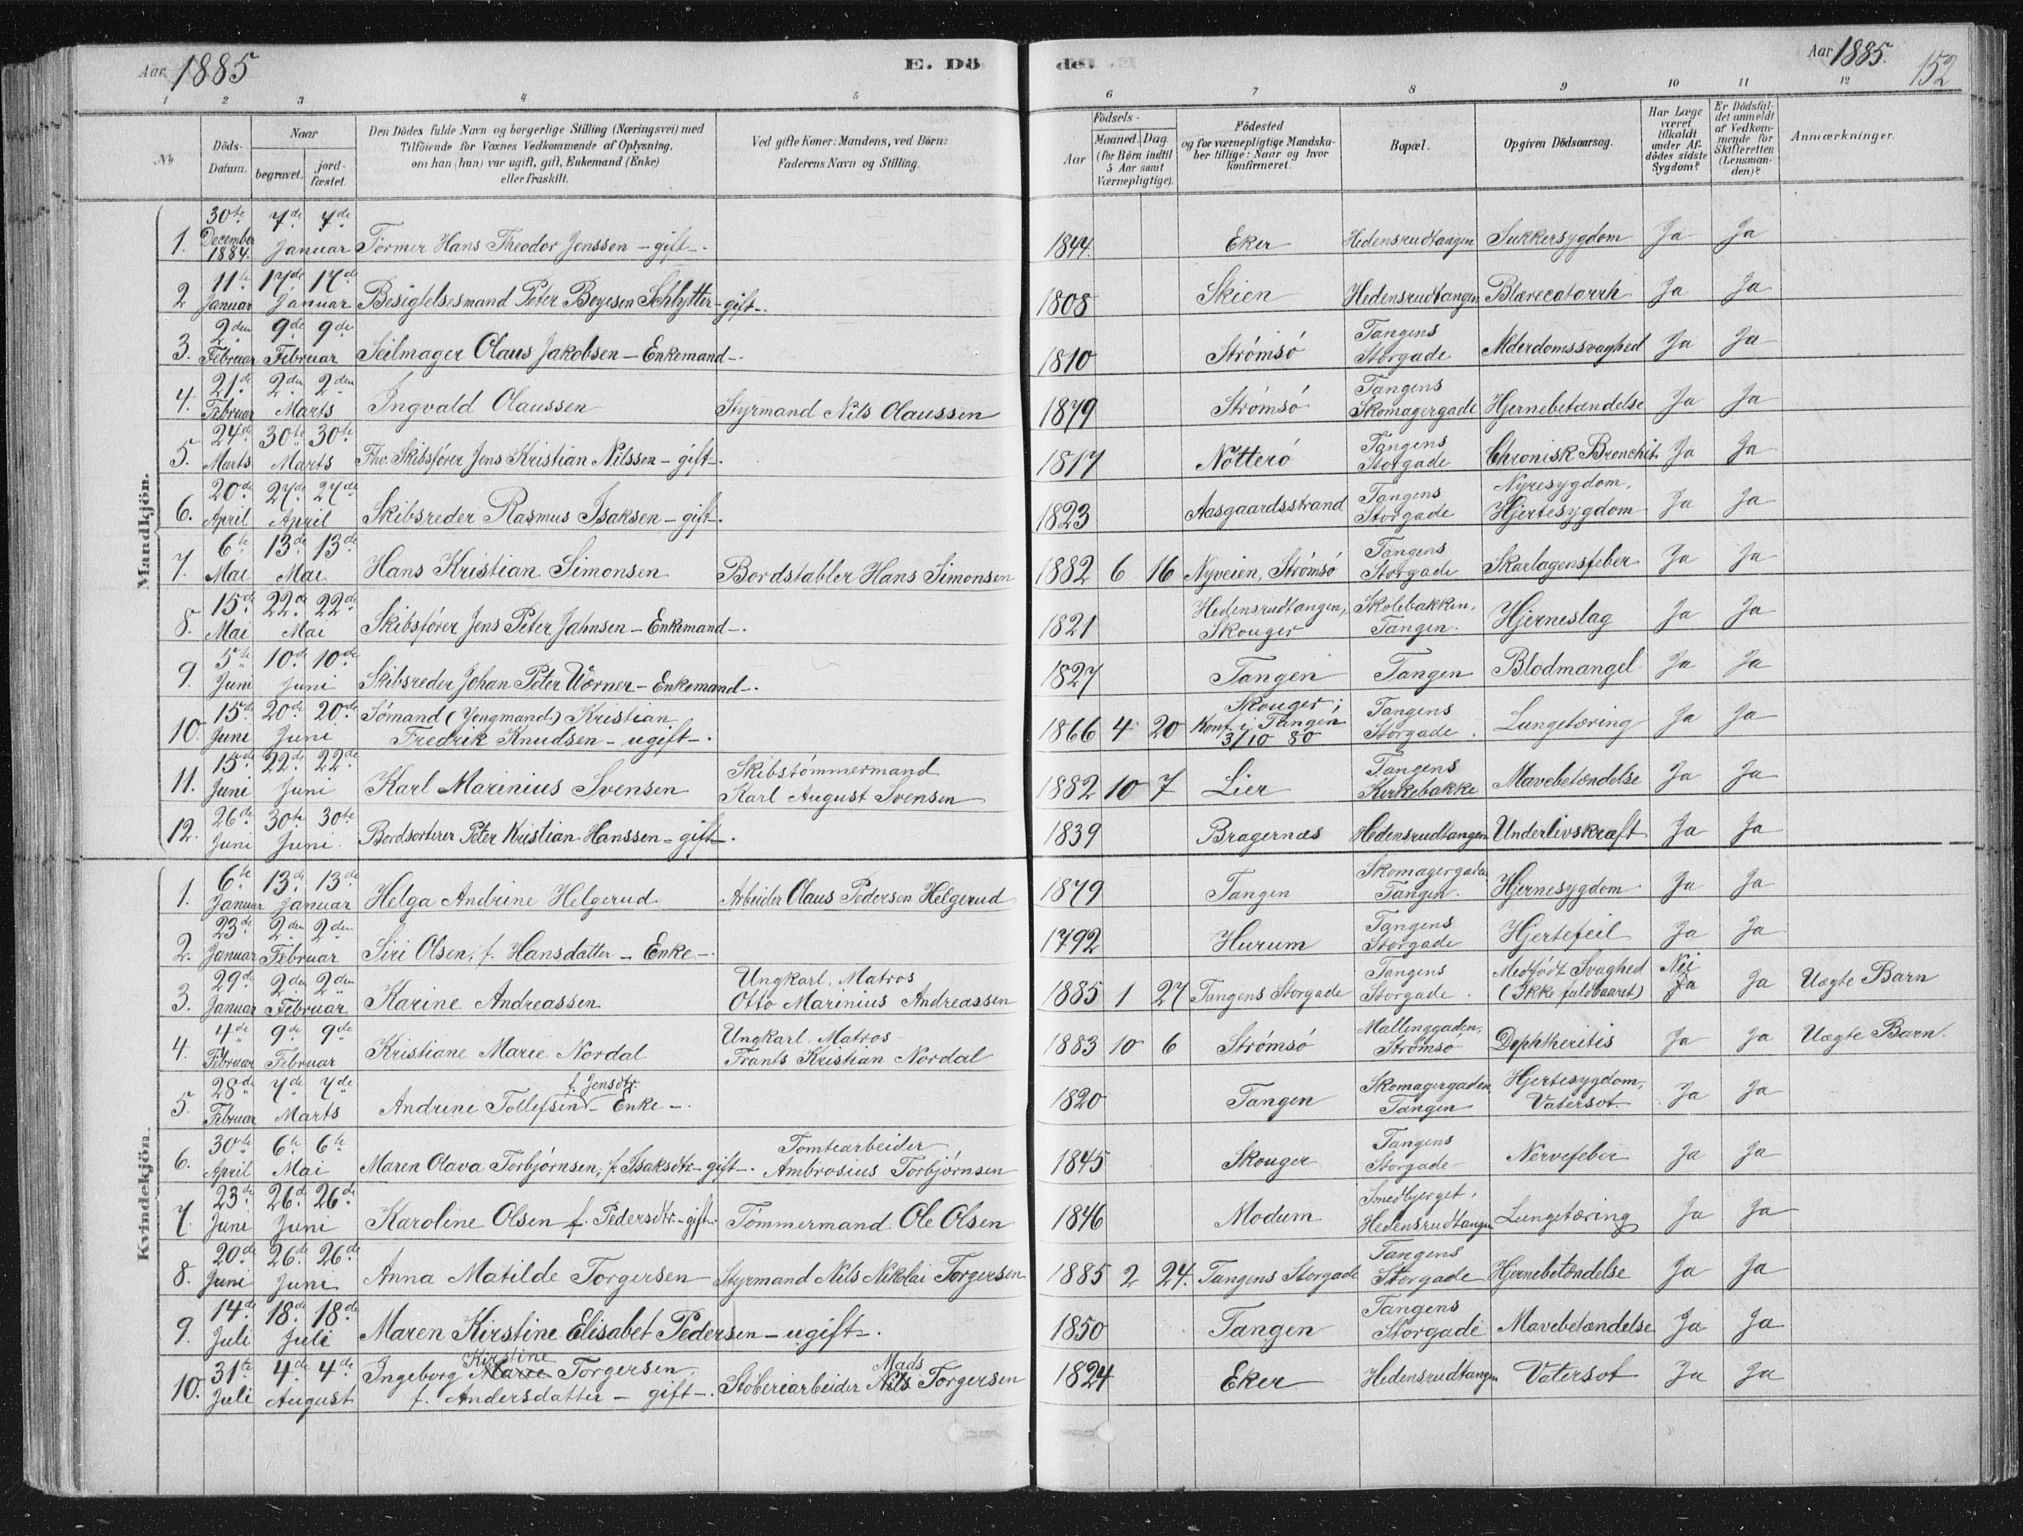 Aar 1885
E. Dö
de.
Aar 1885.
152
1 2 3 4 5 6 7 8 9 10 11 12
No
Döds-Datum.
Naar
begravet.
jord-fæstet.
Den Dödes fulde Navn og borgerlige Stilling (Næringsvei) med
Tilföiende for Voxnes Vedkommende af Oplysning.
om han (hun) var ugift, gift, Enkemand (Enke)
eller fraskilt.
Ved gifte Koner: Mandens, ved Börn:
Faderens Navn og Stilling.
Födsels-
Aar
Maaned. Dag.
(for Börn indtil
5 Aar samt
Værnepligtige).
Födested
og for værnepligtige Mandska-
ber tillige: Naar og hvor
konfirmeret.
Bopæl.
Opgiven Dödsaarsag.
Har Læge
været
tilkaldt
under Af-
dödes sidste
Sygdom?
Er Dödsfal-
det anmeldt
af Vedkom-
mende for
Skifteretten
(Lensman-
den)?
Anmærkninger.
Mandkjön.
1. 30te December 1884. 7de 7de Januar Former Hans Theodor Jenssen – gift –. 1844. Eker Hedensrudtangen Sukkersygdom Ja Ja
2 11te Januar 17de 17de Januar Besigtelsesmand Peter Boyesen Schlytter – gift –. 1808 Skien Hedensrudtangen Blærecatarrh Ja Ja
3. 2den Februar 9de 9de Februar Seilmager Olaus Jakobsen – Enkemand –. 1810 Strømsø Tangens Storgade Alderdomssvaghed Ja Ja
4. 21de Februar 2den 2den Marts Ingvald Olaussen Styrmand Nils Olaussen 1879 Strømsø Tangens Skomagergade Hjernebetændelse Ja Ja
5. 24de Marts 30te 30te Marts Fhv. Skibsfører Jens Kristian Nilssen – gift –. 1817 Nøtterø Tangens Storgade Chronisk Bronchit. Ja Ja
6. 20de April 27de 27de April Skibsreder Rasmus Isaksen – gift –. 1823 Aasgaardsstrand Tangens Storgade Nyresygdom, Hjertesygdom Ja Ja
7. 6te Mai 13de 13de Mai Hans Kristian Simonsen Bordstabler Hans Simonsen 1882 6 16 Nyveien, Strømsø Tangens Storgade Skarlagensfeber Ja Ja
8. 15de Mai 22de 22de Mai Skibsfører Jens Peter Jahnsen – Enkemand –. 1821 Hedensrudtangen, Skouger Skolebakken, Tangen. Hjerneslag Ja Ja
9. 5te Juni 10de 10de Juni Skibsreder Johan Peter Wörner – Enkemand –. 1827 Tangen Tangen Blodmangel Ja Ja
10. 15de Juni 20de 20de Juni Sømand (Yengmand) Kristian Fredrik Knudsen – ugift –. 1866 4 20 Skouger; Konf. i Tangen 3/10 80 Tangens Storgade. Lungetæring Ja Ja
11. 15de Juni 22de 22de Juni Karl Marinius Svensen Skibstømmermand Karl August Svensen 1882 10 7 Lier Tangens Kirkebakke Mavebetændelse Ja Ja
12. 26de Juni 30te 30te Juni. Bordsorterer Peter Kristian Hanssen – gift –. 1839 Bragernæs Hedensrudtangen Underlivskræft Ja Ja
Kvindekjön.
1. 6te Januar 13de 13de Januar Helga Andrine Helgerud Arbeider Olaus Pedersen Helgerud 1879 Tangen Skomagergaden Tangen. Hjernesygdom Ja Ja
2. 23de Januar 2den 2den Februar Siri Olsen, f. Hansdatter – Enke –. 1792 Hurum Tangens Storgade Hjertefeil Ja Ja
3. 29de Januar 2den 2den Februar Karine Andreassen Ungkarl, Matros Otto Marinius Andreassen 1885 1 27 Tangens Storgade Tangens Storgade. Medfødt Svaghed (Ikke fuldbaaret) Nei Ja Ja Uægte Barn
4. 4de Februar 9de 9de Februar Kristiane Marie Nordal Ungkarl, Matros Frants Kristian Nordal 1883 10 6 Strømsø Mallinggaden, Strømsø Dephtheritis Ja Ja Uægte Barn.
5. 28de Februar 7de 7de Marts Andrine Tollefsen f. Jensdtr. – Enke –. 1820 Tangen Skomagergaden Tangen Hjertesygdom, Vatersot Ja Ja
6. 30te April 6te 6te Mai Maren Olava Torbjørnsen, f. Isaksdtr – gift –. Tomtearbeider Ambrosius Torbjørnsen 1845 Skouger Tangens Storgade Nervefeber Ja Ja
7. 23de Juni 26de 26de Juni Karoline Olsen f. Pedersdtr – gift – Tømmermand Ole Olsen 1846 Modum Smedbjerget, Hedensrudtangen Lungetæring Ja Ja
8. 20de Juni 26de 26de Juni Anna Matilde Torgersen Styrmand Nils Nikolai Torgersen 1885 2 24. Tangens Storgade Tangens Storgade Hjernebetændelse Ja Ja
9. 14de Juli 18de 18de Juli Maren Kirstine Elisabet Pedersen – ugift –. 1850 Tangen Tangens Storgade Mavebetændelse Ja Ja
10. 31te Juli 4de 4de August Ingeborg Marie Kirstine Torgersen, f. Andersdatter – gift –. Støberiarbeider Nils Mads Torgersen 1824 Eker Hedensrudtangen Vatersot Ja Ja